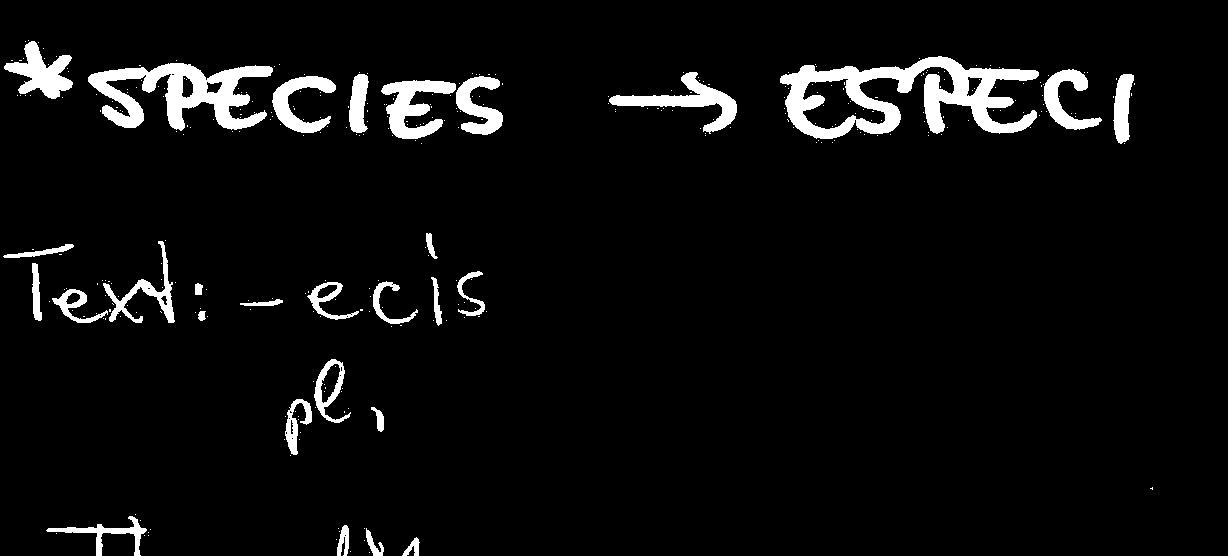 *SPECIES → ESPECI
Text: -ecis
pl.